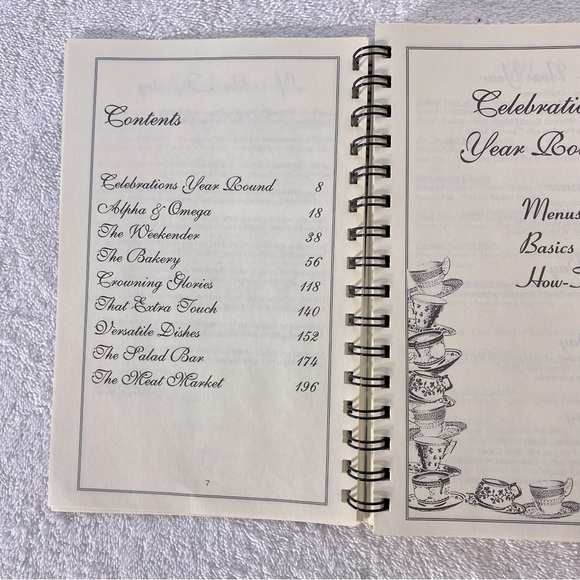 Contents
Celebrations Year Round 8
Alpha & Omega 18
The Weekender 38
The Bakery 56
Crowning Glories 118
That Extra Touch 140
Versatile Dishes 152
The Salad Bar 174
The Meat Market 196
7
Celebratio
Year Rou
Menus
Basics
How-